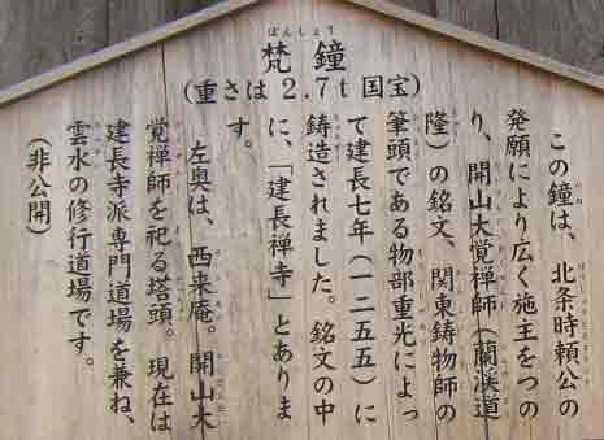 ぼんしょう
梵鐘
(重さは2.7t国宝)
この鐘は、北条時頼公の
発願により広く施主をつの
り、開山大覚禅師(蘭渓道
隆)の銘文、関東鋳物師の
筆頭である物部重光によっ
て建長七年(一二五五)に
鋳造されました。銘文の中
に、「建長禅寺」とありま
す。
左奥は、西来庵。開山大
覚禅師を祀る塔頭。現在は
建長寺派専門道場を兼ね、
雲水の修行道場です。
(非公開)